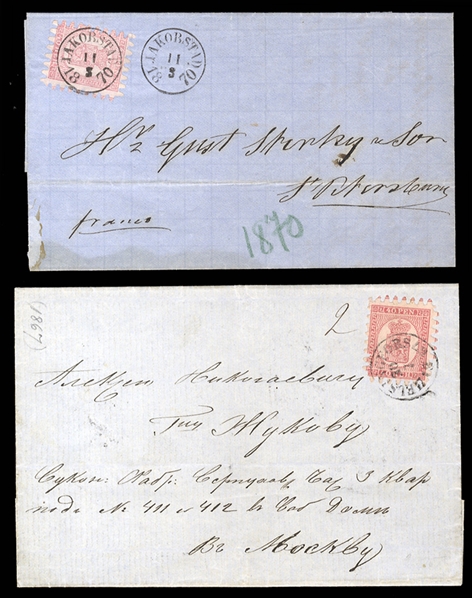 JAKOBSTAD
11
3
18 70
JAKOBSTAD
11
3
18 70
Hrr Gust & Son
St Petersburg
franco
1870
(1867)
2
40 PEN
Николаевичу
Гну Жукову
Сукон: Фабр: Серпухов. Ча 3 Квар
подъ № 411 и 412 в Соб Доми
Въ Москву